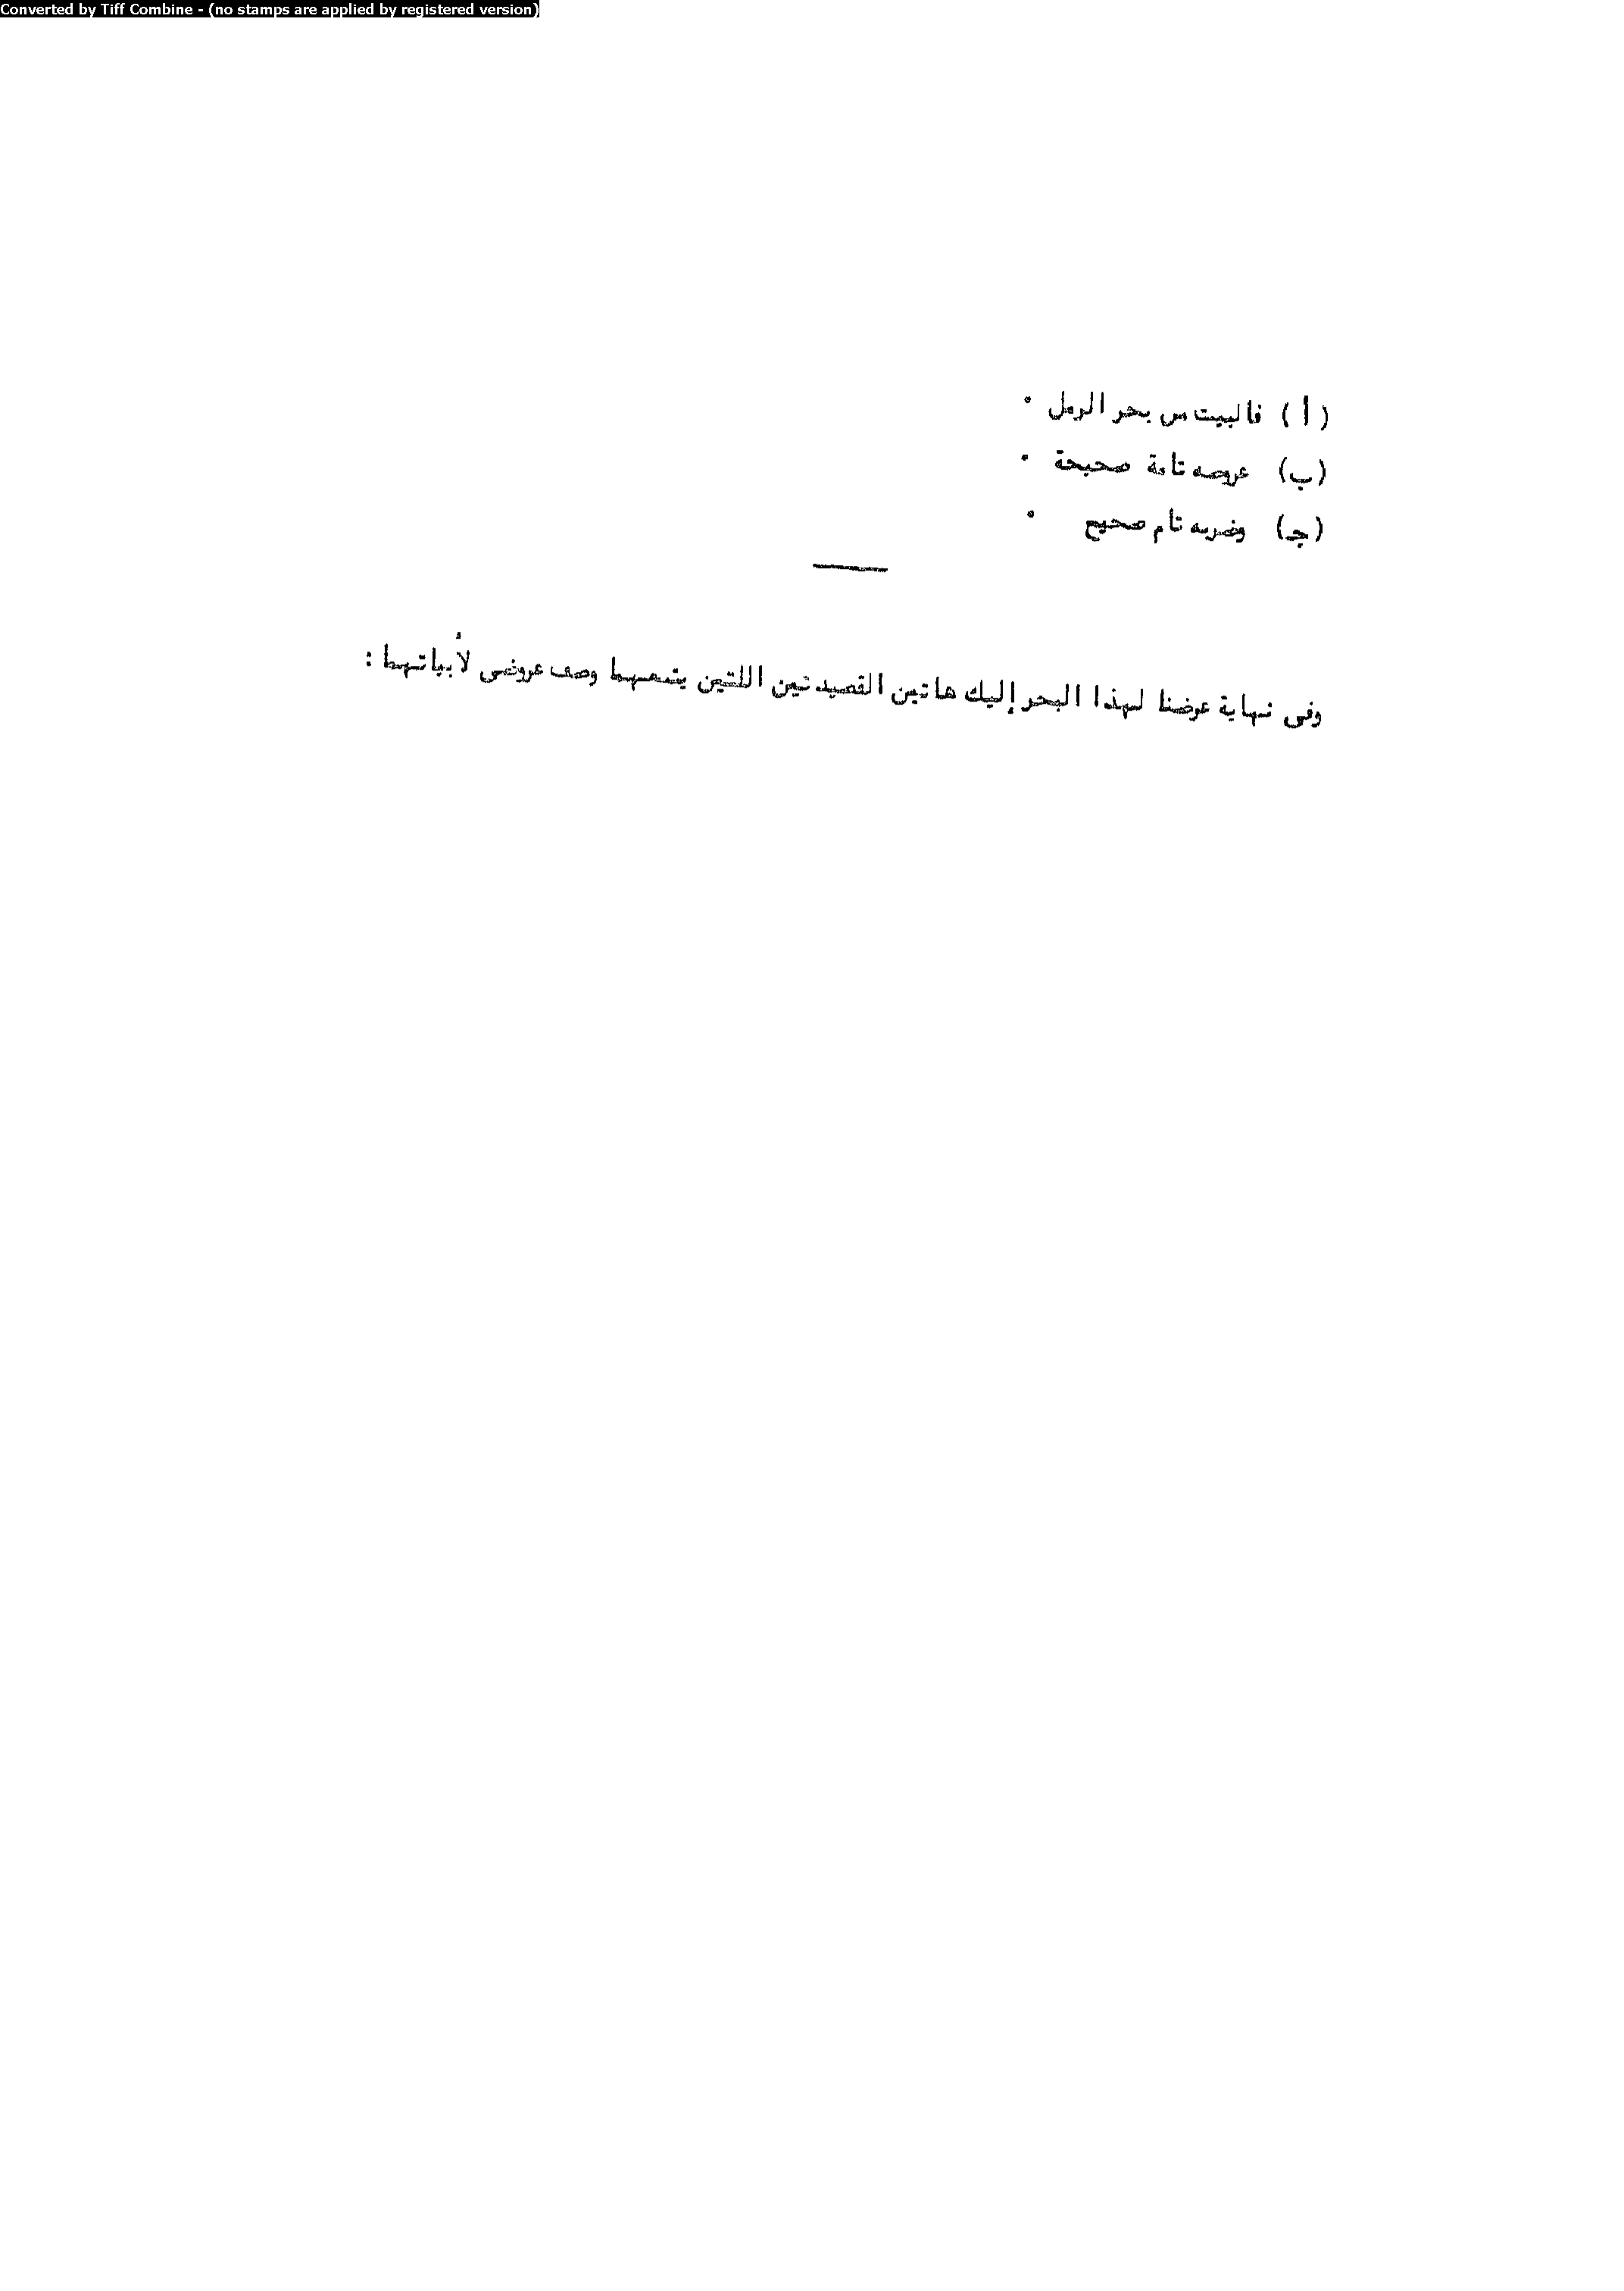 Converted by Tiff Combine - (no stamps are applied by registered version)
( أ ) فالبيت من بحر الرمل .
(ب) عروضه تامة صحيحة .
(جـ) وضربه تام صحيح .
وفى نهاية عرضنا لهذا البحر إليك هاتين القصيدتين اللتين يتبعهما وصف عروضى لأبياتهما :